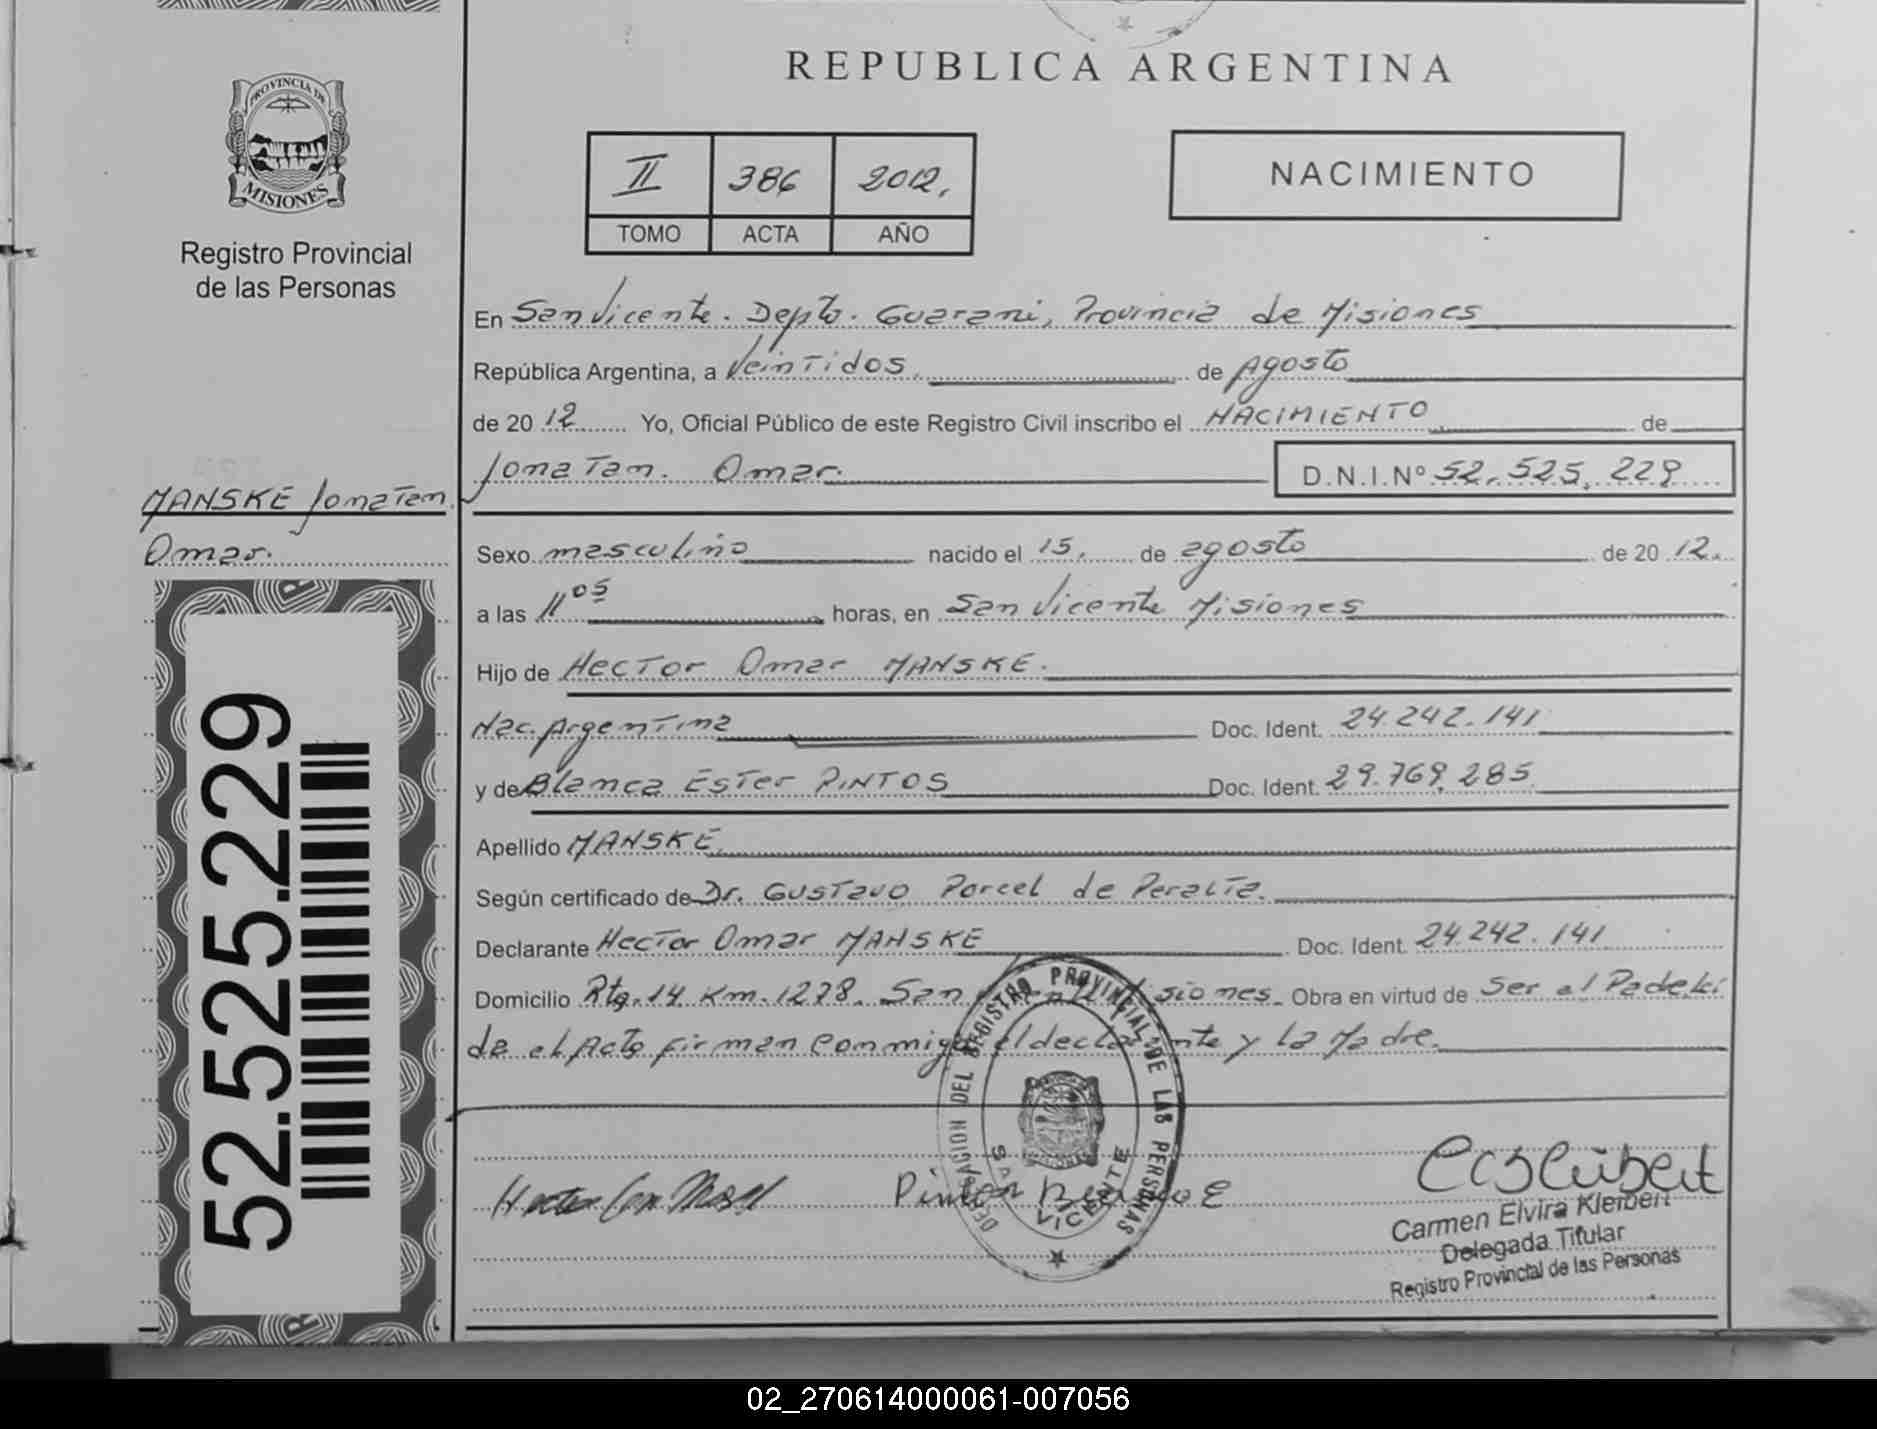 REPUBLICA ARGENTINA
PROVINCIA DE
MISIONES
Registro Provincial
de las Personas
II 386 2012.
TOMO ACTA AÑO
NACIMIENTO
En San Vicente. Depto. Guarani, Provincia de Misiones
República Argentina, a Veintidos. de Agosto
de 2012 Yo, Oficial Público de este Registro Civil inscribo el NACIMIENTO de
Jonatan. Omar. D.N.I.Nº 52.525.229
MANSKE Jonatan.
Omar.
Sexo masculino nacido el 15. de agosto de 2012.
a las 11 05 horas, en San Vicente Misiones
Hijo de Hector Omar MANSKE.
Nac. Argentina Doc. Ident. 24.242.141
y de Blanca Ester PINTOS Doc. Ident. 29.769.285
Apellido MANSKE.
Según certificado de Dr. Gustavo Porcel de Peralta.
Declarante Hector Omar MANSKE Doc. Ident. 24.242.141
Domicilio Rta. 14 Km. 1278. San Misiones. Obra en virtud de Ser el Padre.
de el Acto firman conmigo el declarante y La Madre.
52.525.229
DELEGACION DEL REGISTRO PROVINCIAL DE LAS PERSONAS
SAN VICENTE
Pintos Blanca E
Carmen Elvira Kleibert
Delegada Titular
Registro Provincial de las Personas
02_270614000061-007056